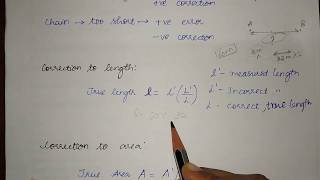 +ve correction
Chain → too short → +ve error
-ve correction
A B
Correction to length:
True length l = l'(L'/L)
l' - measured length
L' - Incorrect "
L - correct, true length
Correction to area:
True Area A = A'